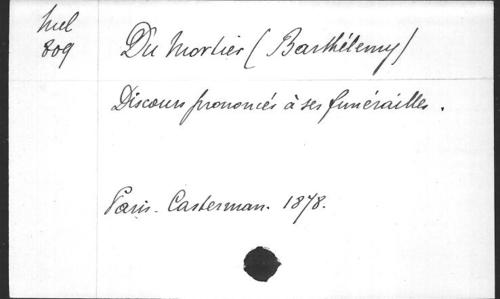 Mel
809
Du Mortier (Barthélemy)
Discours prononcés à ses funérailles.
Paris. Casterman. 1878.